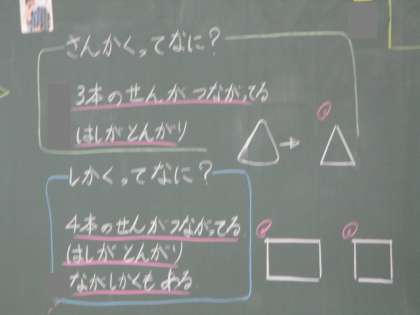 さんかくってなに?
3本のせんがつながってる
はしがとんがり
しかくってなに?
4本のせんがつながってる
はしがとんがり
ながしかくもある